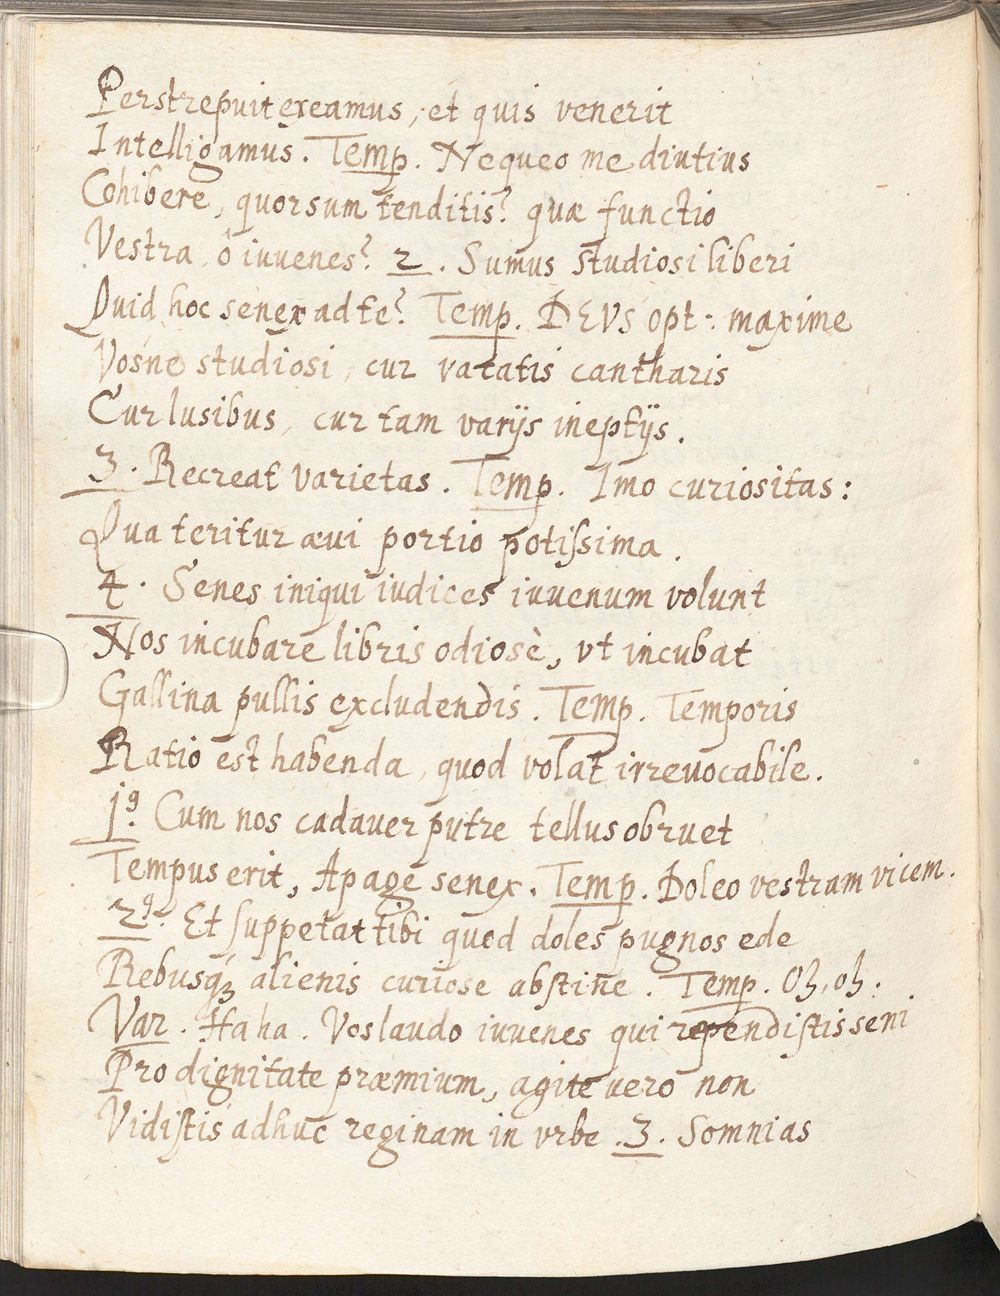 Perstrepuit exeamus, et quis venerit
Intelligamus. Temp. Nequeo me diutius
Cohibere, quorsum tenditis? quæ functio
Vestra, ô iuuenes? 2. Sumus studiosi liberi
Quid hoc senex ad te? Temp. DEVS opt: maxime
Vosne studiosi, cur vacatis cantharis
Cur lusibus, cur tam varijs ineptijs.
3. Recreat varietas. Temp. Imo curiositas:
Qua teritur æui portio potiſsima.
4. Senes iniqui iudices iuuenum volunt
Nos incubare libris odiosè, vt incubat
Gallina pullis excludendis. Temp. Temporis
Ratio est habenda, quod volat irreuocabile.
1⁹. Cum nos cadauer putre tellus obruet
Tempus erit, Apage senex. Temp. Doleo vestram vicem.
2⁹. Et ſuppetat tibi quod doles pugnos ede
Rebusqꝫ alienis curiose abſtine. Temp. Oh, oh.
Var. Ha ha. Vos laudo iuuenes qui rependiſtis seni
Pro dignitate præmium, agite vero non
Vidiſtis adhuc reginam in vrbe. 3. Somnias